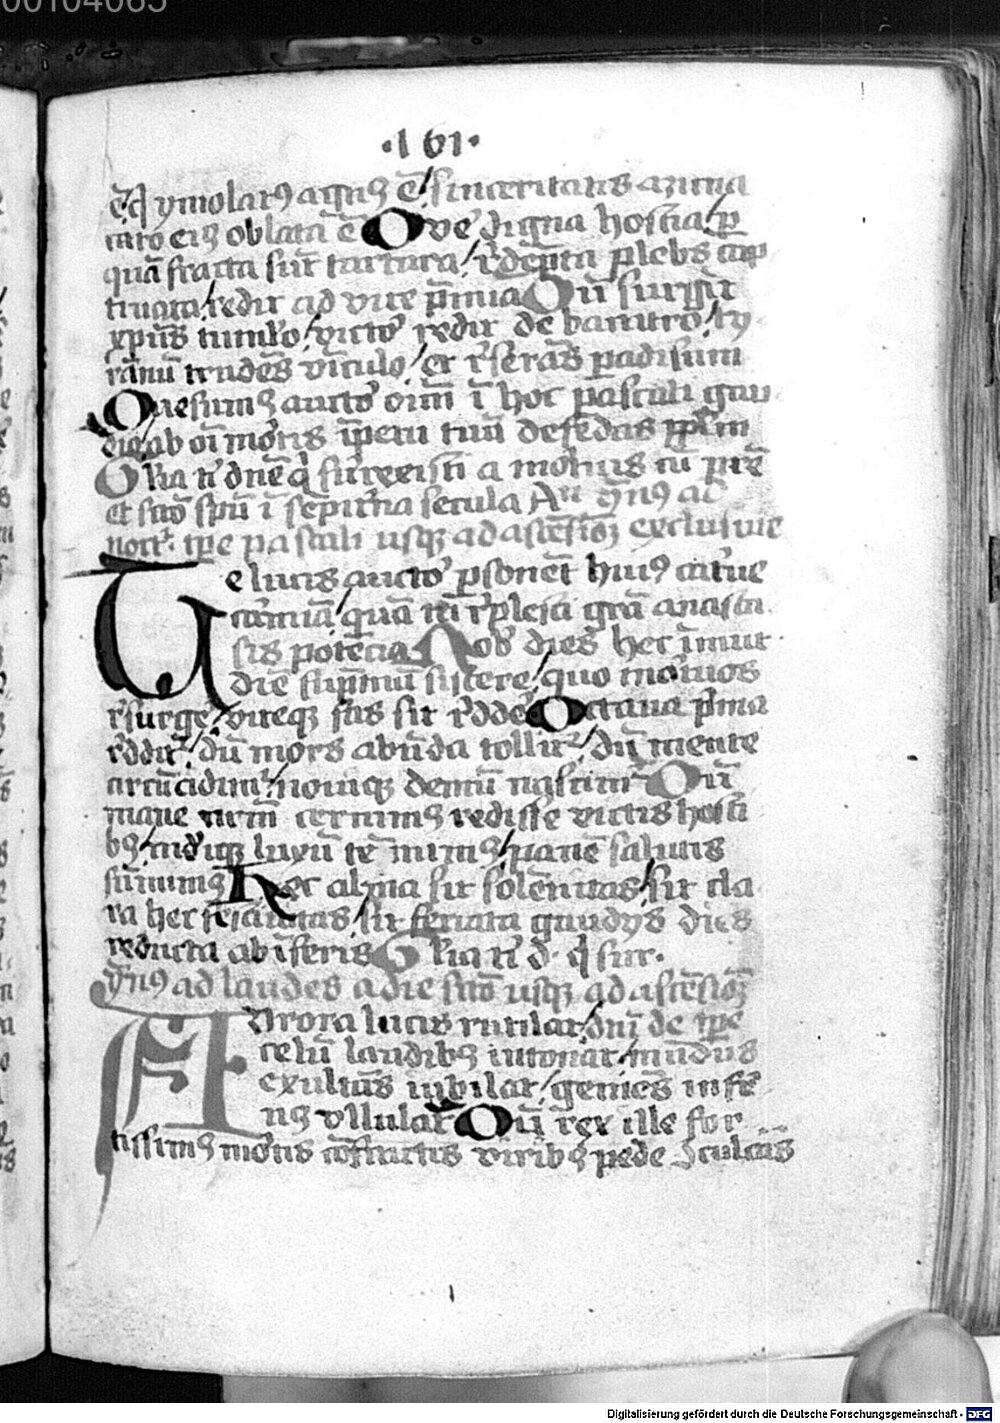 00104065
·161·
ē q̄ ymolatꝰ agnꝰ ē / sinceritatis azima
caro eiꝰ oblata ē O ve digna hostia / p̄
quā fracta sūt tartara / r̄dēpta plebs cap
tiuata / redit ad vite p̄mia Cū surgit
xp̄us tumulo / victor redit de baratro / ty
rānū trudēs vinculo / et r̄serās padisum
Quesumꝰ auctor oīm ī hoc pascali gau
dio / ab oī mortis īpetu tuū defēdas pplm̄
Glia t' dn̄e q̄ surrexisti a mortuis cū pr̄e
et sc̄o sp̄u ī sempitna secula Am̄ ymnꝰ ad
noct' tp̄e pascali usqꝫ ad ascēsioꝫ exclusiue
Te lucis auctor p̄sonēt huiꝰ caterue
carmia / quā tu r̄plesti gr̄a anasta
sis potēcia Nob' dies hec īmuit
diē supmū sistere / quo mortuos
r̄surge' / viteqꝫ fas sit r̄dde' Octaua p̄ma
r̄ddit' / dū mors abūda tollit' / dū mente
circūcidimr / nouiqꝫ demū nascimr Cū
mane nr̄m cernimꝰ redisse victis hosti
bꝰ / mūdiqꝫ luxū tēnimꝰ / panē salutis
sumimꝰ Hec alma sit solēnitas / sit cla
ra hec festiuitas / sit feriata gaudys dies
reducta ab īferis Glia t' d· q̄ sur·
ymnꝰ ad laudes a die sc̄o usqꝫ ad ascēsioꝫ
Aurora lucis rutilat / dn̄i de tp̄e
celū laudibꝰ intonat / mūdus
exultās iubilat / gemēs infer
nꝰ vllulat Cū rex ille for
tissimꝰ mortis cōfractis viribꝰ pede ꝯculcās
Digitalisierung gefördert durch die Deutsche Forschungsgemeinschaft - DFG